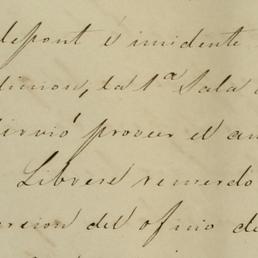 depont é insidente
dinion, la 1ª Sala
sirvió proveer el au
Librese recuerdo
ersion del oficio de